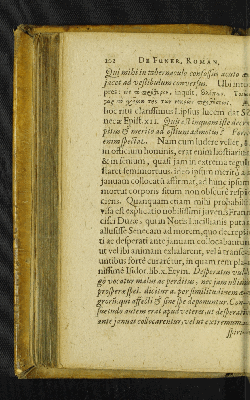 102 DE FUNER. ROMAN.
Qui mihi in tabernaculo confossus acuto
jacet ad vestibulum conversus. Ubi inter-
pres: inquit,
hoc ritu clarissimus Lipsius lucem dat Se-
necæ Epist. XII. Quis est iste decre-
pitus & merito ad ostium admotus? Foras
enim spectat. Nam cum ludere vellet,
in officium hominis, erat enim hostiarius
& insenium, quasi jam in extrema tegula
staret senem mortuus, ideo ipsum merito ad
januam collocatum affirmat, ad hunc ipsum
mortui corporis situm non obscure respi-
ciens. Quanquam etiam mihi probabilis
visa est explicatio nobilissimi juvenis Fran-
cisci Duræi, quia Nota incellariis putat
allusisse Senecam ad morem, quo decrepiti
ac desperati ante januam collocabantur,
ut vel ibi animam exhalarent, vel à transe-
untibus forte curarētur, in quam rem pla-
nissime Isidor. lib. x. Etym. Desperatus vul-
go vocatur malus ac perditus, nec jam ullius
prosperæ spei. dicitur a. per similitudinem æ-
grorū qui affecti & sine spe deponuntur. Con-
suetudo autem erat apud veteres ut desperati
ante januas collocarentur, vel ut extremum
spiri-